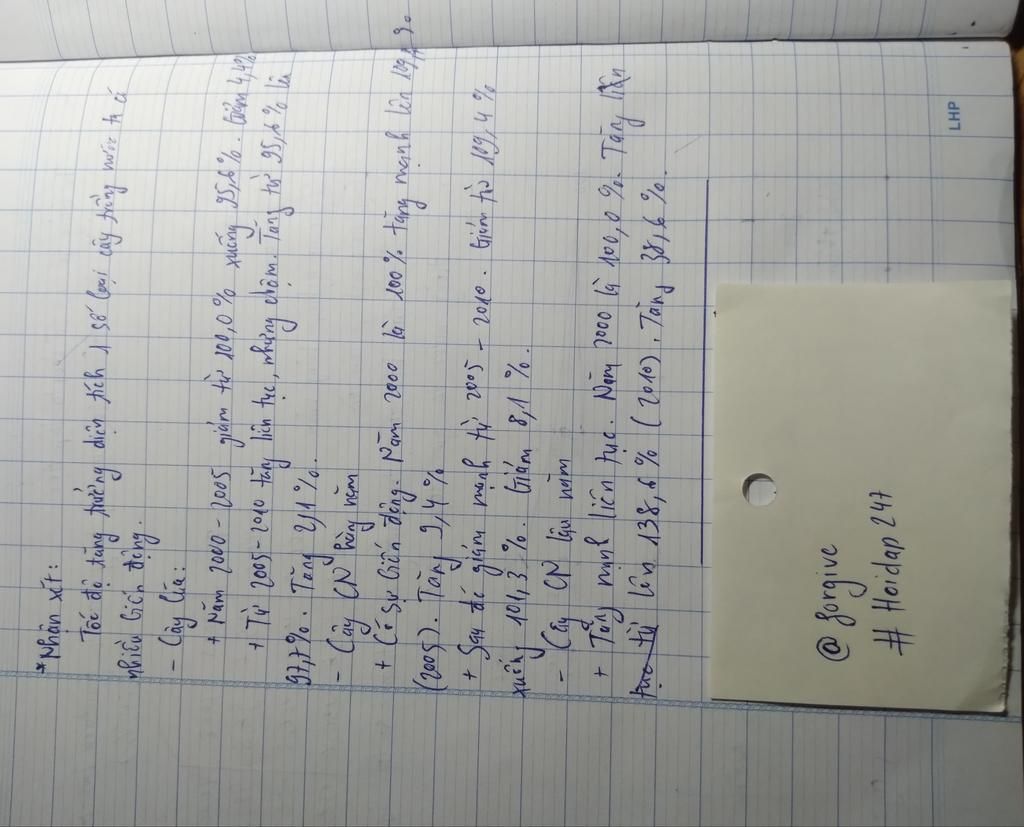 * Nhận xét:
Tốc độ tăng trưởng diện tích 1 số loại cây trồng nước ta có
nhiều biến động.
- Cây lúa:
+ Năm 2000 - 2005 giảm từ 100,0% xuống 95,6%. Giảm 4,4%
+ Từ 2005 - 2010 tăng liên tục, nhưng chậm. Tăng từ 95,6% lên
97,7%. Tăng 2,1%.
- Cây CN hằng năm
+ Có sự biến động. Năm 2000 là 100% tăng mạnh lên 109,4%
(2005). Tăng 9,4%
+ Sau đó giảm mạnh từ 2005 - 2010. Giảm từ 109,4%
xuống 101,3%. Giảm 8,1%.
- Cây CN lâu năm
+ Tăng mạnh liên tục. Năm 2000 là 100,0%. Tăng liên
tục từ lên 138,6% (2010). Tăng 38,6%.
@ gorgive
# Hoidap 247
LHP